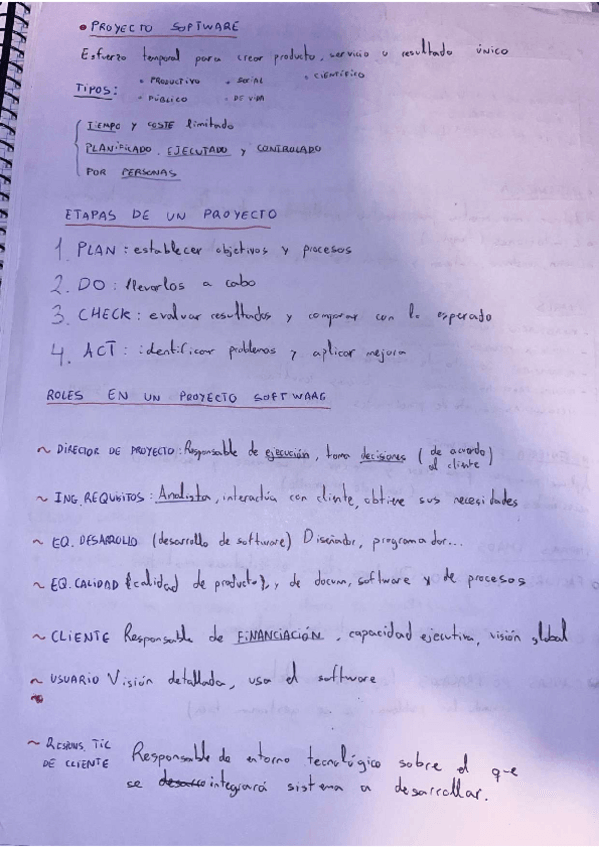 • PROYECTO SOFTWARE
Esfuerzo temporal para crear producto, servicio u resultado único
TIPOS: • PRODUCTIVO • SOCIAL • CIENTÍFICO
• PÚBLICO • DE VIDA
TIEMPO y COSTE limitado
PLANIFICADO, EJECUTADO y CONTROLADO
POR PERSONAS
ETAPAS DE UN PROYECTO
1. PLAN: establecer objetivos y procesos
2. DO: llevarlos a cabo
3. CHECK: evaluar resultados y comparar con lo esperado
4. ACT: identificar problemas y aplicar mejora
ROLES EN UN PROYECTO SOFTWARE
~ DIRECTOR DE PROYECTO: Responsable de ejecución, toma decisiones (de acuerdo
al cliente)
~ ING. REQUISITOS: Analista, interactúa con cliente, obtiene sus necesidades
~ EQ. DESARROLLO (desarrollo de software) Diseñador, programador...
~ EQ. CALIDAD {calidad de producto}, y de docum, software y de procesos
~ CLIENTE Responsable de FINANCIACIÓN, capacidad ejecutiva, visión global
~ USUARIO Visión detallada, usa el software
~ RESPONS. TIC
DE CLIENTE Responsable de entorno tecnológico sobre el que
se integrará sistema a desarrollar.